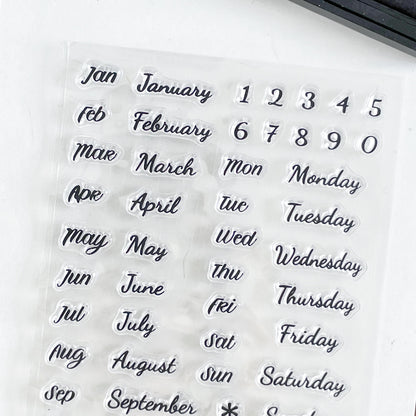 Jan January 1 2 3 4 5
Feb February 6 7 8 9 0
Mar March Mon Monday
Apr April Tue Tuesday
May May Wed Wednesday
Jun June Thu Thursday
Jul July Fri Friday
Aug August Sat Saturday
Sep September Sun *